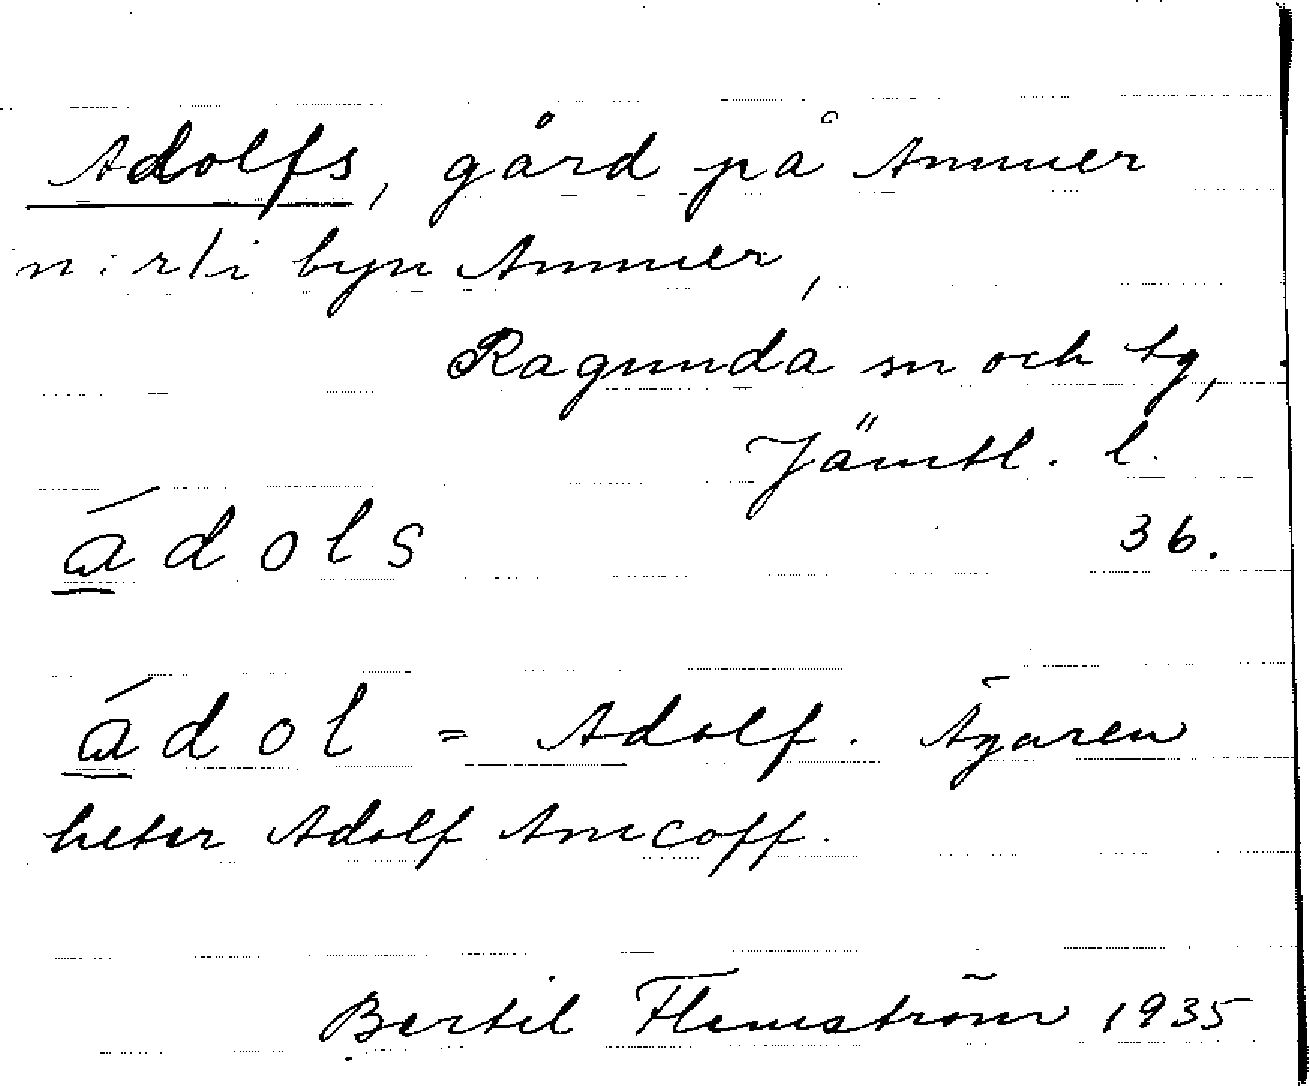 Adolfs, gård på Ammer
n:r 1 i byn Ammer,
Ragunda sn och tg,
Jämtl. l.
ádols 36.
ádol = Adolf. Ägaren
heter Adolf
Bertil Flemström 1935